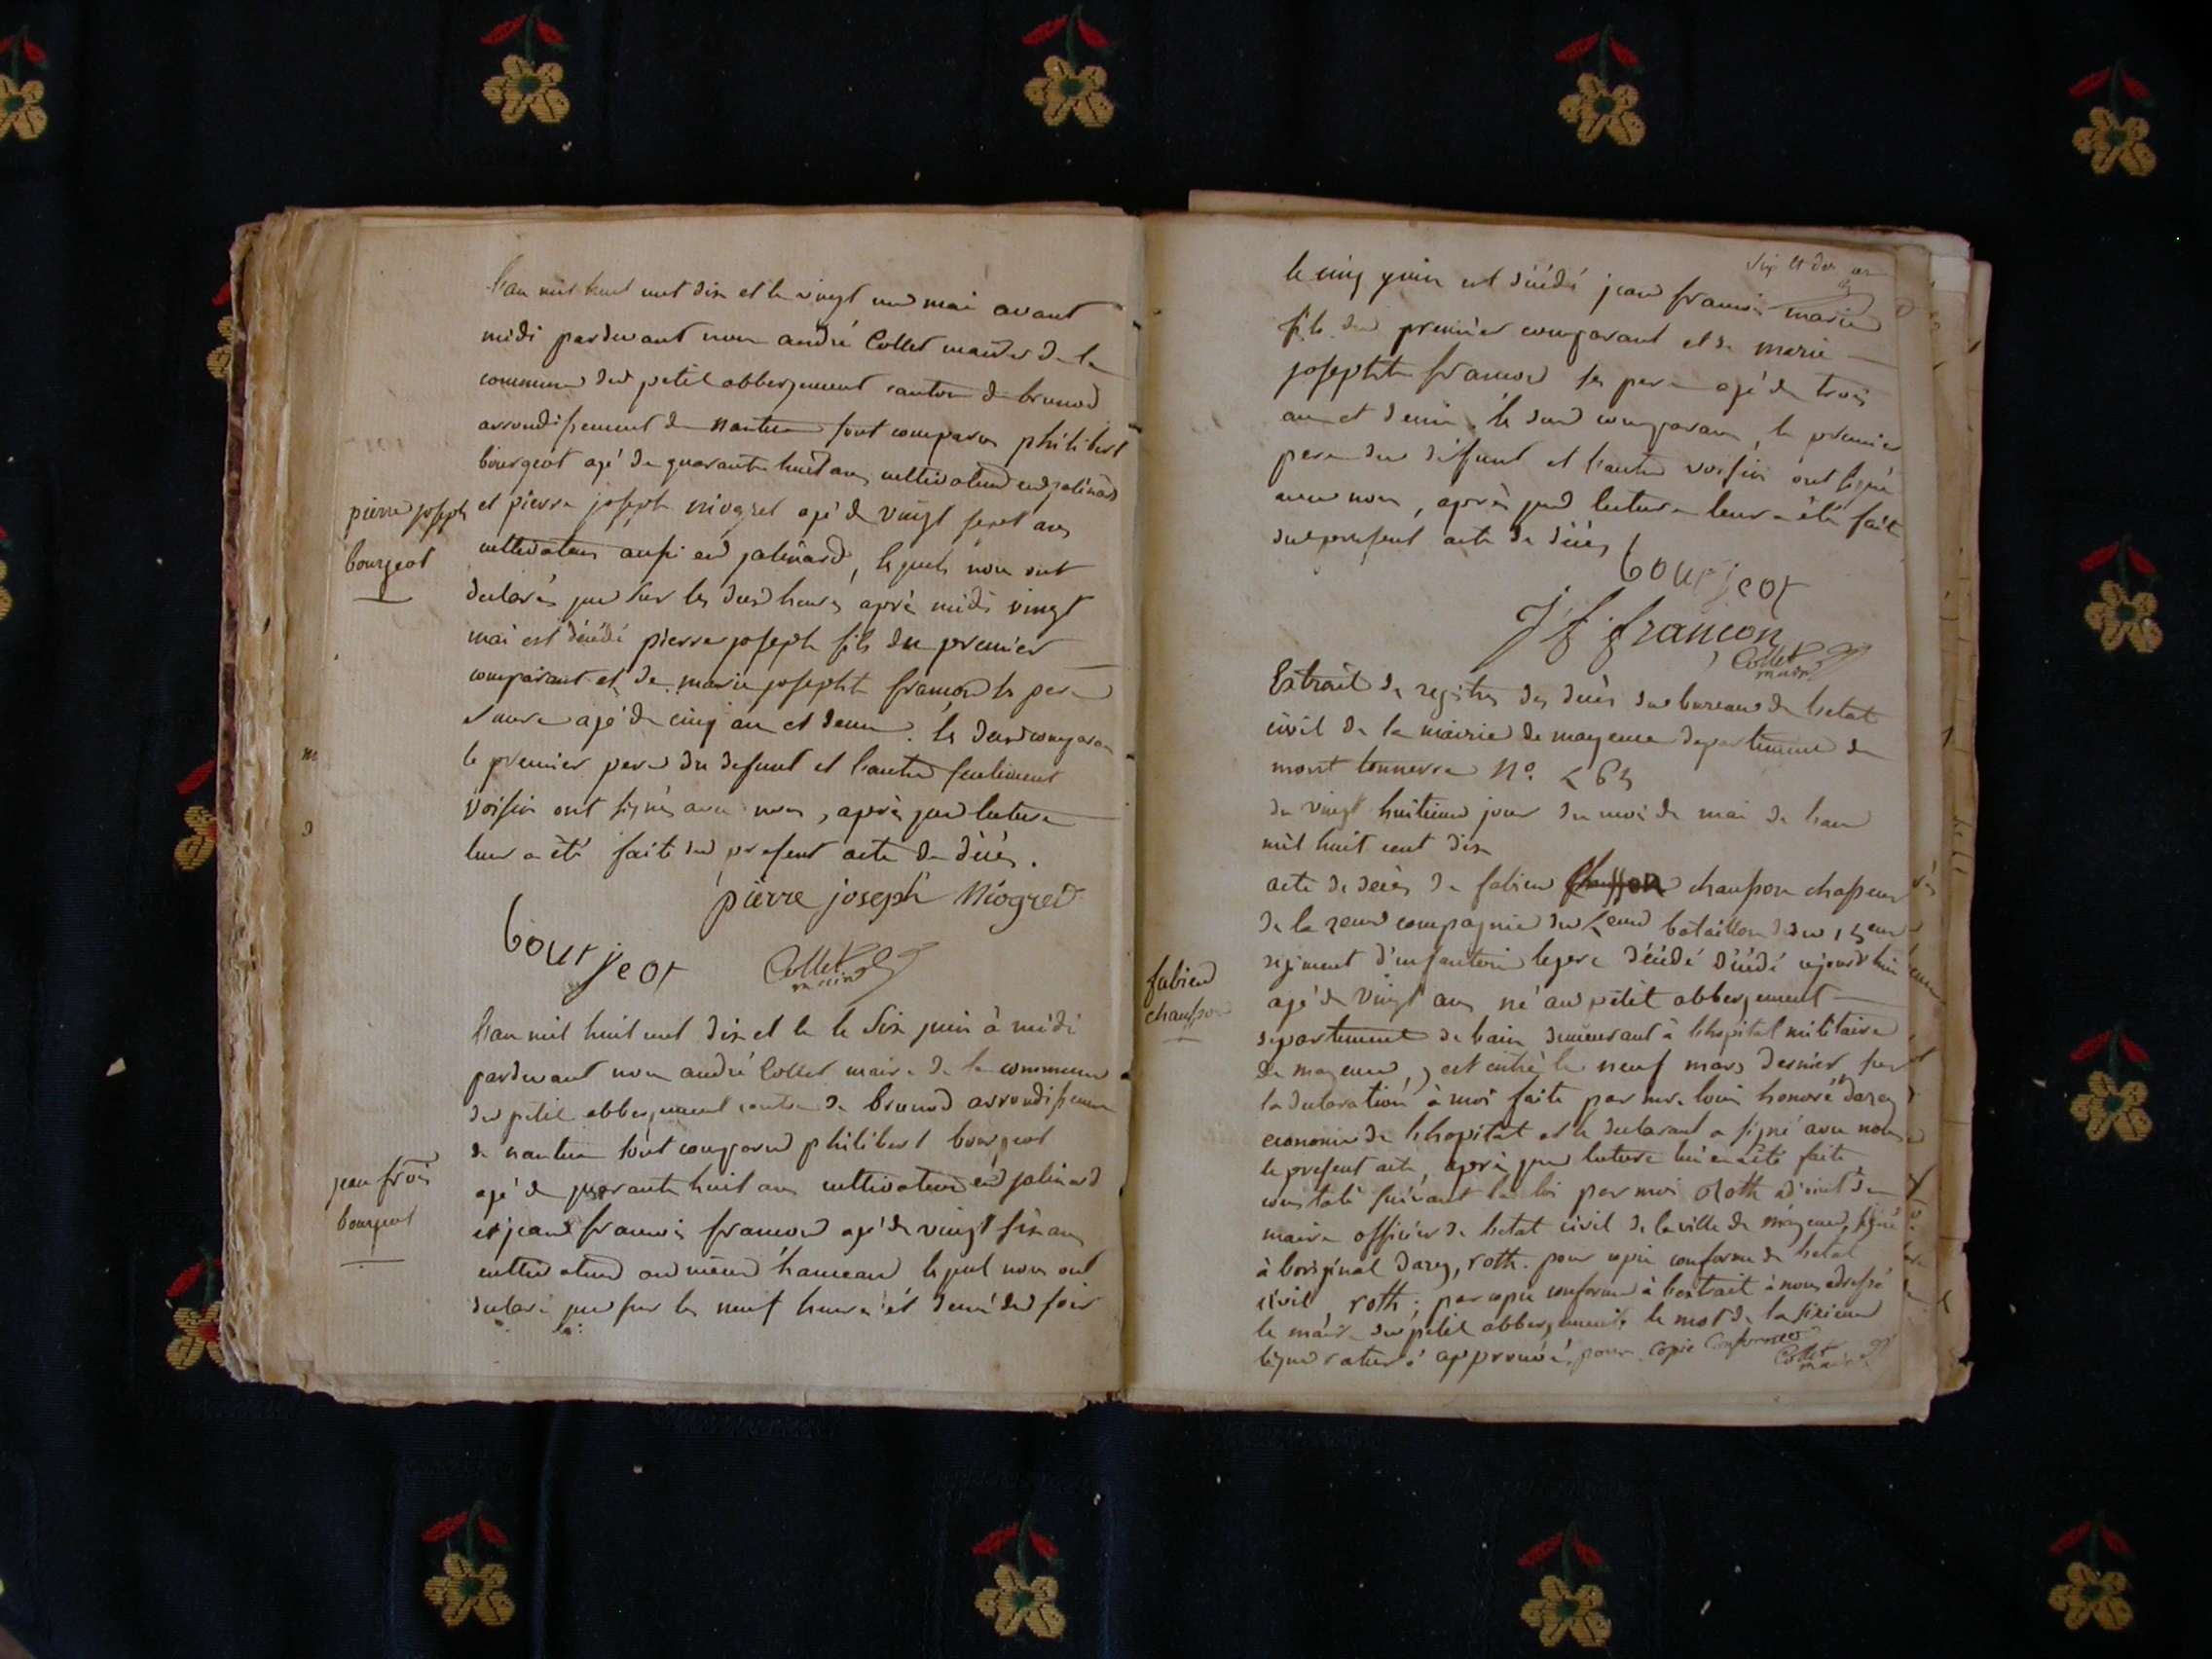 l'an mil huit cent dix et le vingt un mai avant
midi pardevant nous andré Collet maire de la
commune du petit abbergement canton de brenod
arrondissement de nantua sont comparus philibert
bourgeot agé de quarante huit ans cultivateur en jalinard
pierre joseph
bourgeot
et pierre joseph niogret agé de vingt sept ans
cultivateur aussi en jalinard, lesquels nous ont
declarés que sur les deux heures après midi vingt
mai est décédé pierre joseph fils du premier
comparant et de marie josephte françon ses pere
et mere agé de cinq ans et demi. les deux comparans
le premier pere du defunt et l'autre seulement
voisin ont signés avec nous, après que lecture
leur a été faite du present acte de décès.
pierre joseph Niogret
bourjeot
Collet
maire
l'an mil huit cent dix et le le six juin à midi
pardevant nous andré Collet maire de la commune
du petit abbergement canton de brenod arrondissement
de nantua sont comparus philibert bourgeot
jean frois
bourgeot
agé de quarante huit ans cultivateur en jalinard
et jean francois françon agé de vingt six ans
cultivateur au même hameau lesquel nous ont
declaré que sur les neuf heures et demi du soir
le cinq juin est décédé jean francois marie
fils du premier comparant et de marie
josephte françon ses pere agé de trois
ans et demi. les deux comparans, le premier
pere du defunt et l'autre voisin ont signé
avec nous, après que lecture leur a été fait
du present acte de décès
bourjeot
J f françon
Collet
maire
Extrait des registres des décès du bureau de l'etat
civil de la mairie de mayence departement du
mont tonnerre N°.
du vingt huitieme jour du mois de mai de l'an
mil huit cent dix
acte de decès de fabien chausson chasseur
de la 2eme compagnie du bataillon du
fabien
chausson
regiment d'infanterie legere décédé décédé
agé de vingt ans né au petit abbergement
departement de l'ain demeurant à l'hopital militaire
de mayence, y est entré le neuf mars dernier, sur
la declaration à moi faite par mr. louis honoré darey
econome de l'hopital et le declarant a signé avec nous
le present acte, après que lecture lui en a été faite
constaté suivant la loi par moi Roth adjoint du
maire officier de l'etat civil de la ville de mayence, signé
à l'original darey, roth. pour copie conforme de l'etat
civil roth; par copie conforme à l'extrait à nous adressé
le maire du petit abbergement. le mot de la sixieme
ligne raturé approuvé, pour copie conforme
Collet
maire